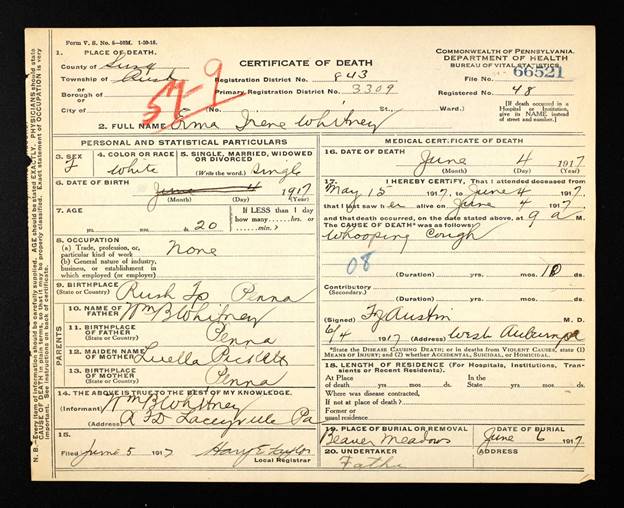 Form V. S. No. 5—
1. PLACE OF DEATH.
County of Susq
Township of Rush
or
Borough of
or
City of
CERTIFICATE OF DEATH
Registration District No. 843
Primary Registration District No. 3309
No. St.; Ward.)
COMMONWEALTH OF PENNSYLVANIA.
DEPARTMENT OF HEALTH
BUREAU OF VITAL STATISTICS.
File No. 66521
Registered No. 48
[If death occurred in a Hospital or Institution, give its NAME instead of street and number.]
2. FULL NAME Erma Irene Whitney
PERSONAL AND STATISTICAL PARTICULARS
3. SEX
F
4. COLOR OR RACE
White
5. SINGLE, MARRIED, WIDOWED OR DIVORCED
(Write the word.) Single
6. DATE OF BIRTH
June 4 1917
(Month) (Day) (Year)
7. AGE
yrs. mos. 20 ds.
If LESS than 1 day
how many hrs. or
min.?
8. OCCUPATION
(a) Trade, profession, or particular kind of work None
(b) General nature of industry, business, or establishment in which employed (or employer)
9. BIRTHPLACE
(State or Country) Rush Tp Penna
PARENTS
10. NAME OF FATHER Wm B Whitney
11. BIRTHPLACE OF FATHER
(State or Country) Penna
12. MAIDEN NAME OF MOTHER Luella
13. BIRTHPLACE OF MOTHER
(State or Country) Penna
14. THE ABOVE IS TRUE TO THE BEST OF MY KNOWLEDGE.
(Informant) Wm B Whitney
(Address) R F D Laceyville Pa
15.
Filed June 5 1917 Harry E
Local Registrar
MEDICAL CERTIFICATE OF DEATH
16. DATE OF DEATH
June 4 1917
(Month) (Day) (Year)
17. I HEREBY CERTIFY, That I attended deceased from
May 15 1917, to June 4 1917,
that I last saw h er alive on June 4 1917,
and that death occurred, on the date stated above, at 9 a M.
The CAUSE OF DEATH* was as follows:
Whooping Cough
08
(Duration) yrs. mos. 10 ds.
Contributory
(Secondary.)
(Duration) yrs. mos. ds.
(Signed) Austin M. D.
6/4 1917 (Address) West Auburn Pa
*State the DISEASE CAUSING DEATH; or in deaths from VIOLENT CAUSES, state (1) MEANS OF INJURY; and (2) whether ACCIDENTAL, SUICIDAL, or HOMICIDAL.
18. LENGTH OF RESIDENCE (For Hospitals, Institutions, Transients or Recent Residents).
At Place of death yrs. mos. ds. In the State yrs. mos. ds.
Where was disease contracted,
if not at place of death?
Former or
usual residence
19. PLACE OF BURIAL OR REMOVAL
Beaver Meadows
DATE OF BURIAL
June 6 1917
20. UNDERTAKER
Father
ADDRESS